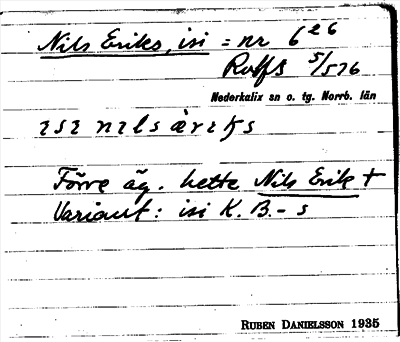 Nils Eriks, isi = nr 6 26
Rolfs 5/576
Nederkalix sn o. tg. Norrb. län
ɪsɪ nɪls
Förre äg. hette Nils Erik +
Variant: isi K. B. - s
RUBEN DANIELSSON 1935